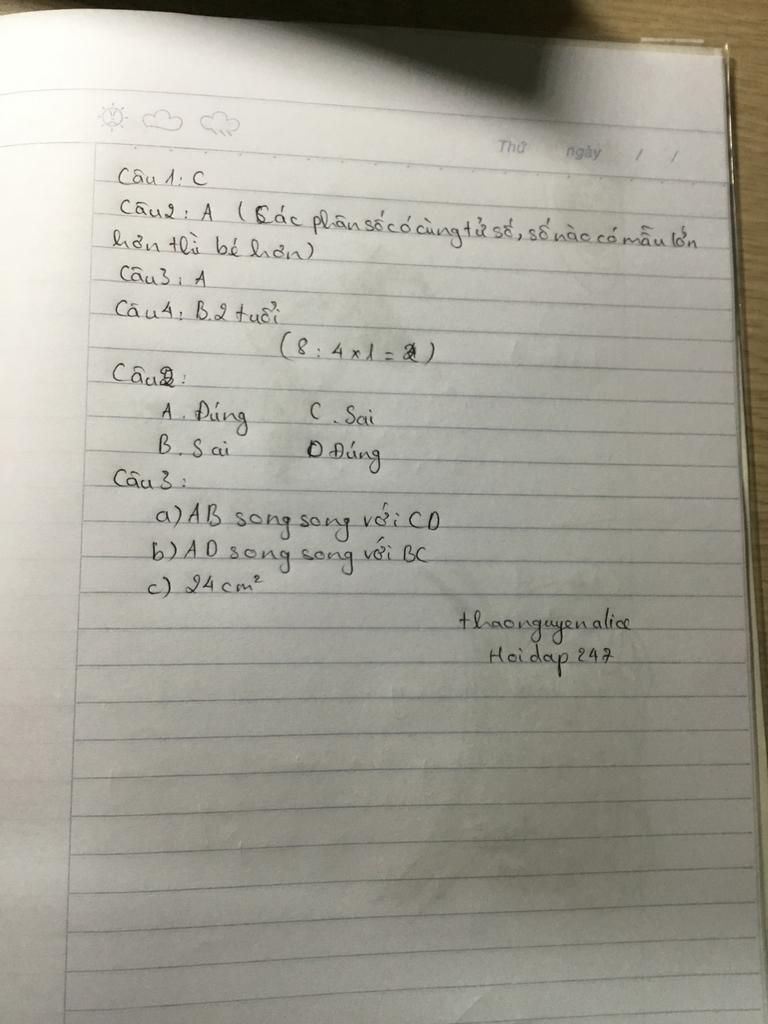 Thứ ngày / /
Câu 1: C
Câu 2: A (Các phân số có cùng tử số, số nào có mẫu lớn
hơn thì bé hơn)
Câu 3: A
Câu 4: B. 2 tuổi
(8 : 4 x 1 = 2)
Câu 2:
A. Đúng C. Sai
B. Sai D Đúng
Câu 3:
a) AB song song với CD
b) AD song song với BC
c) 24 cm²
thaonguyenalice
Hoidap 247